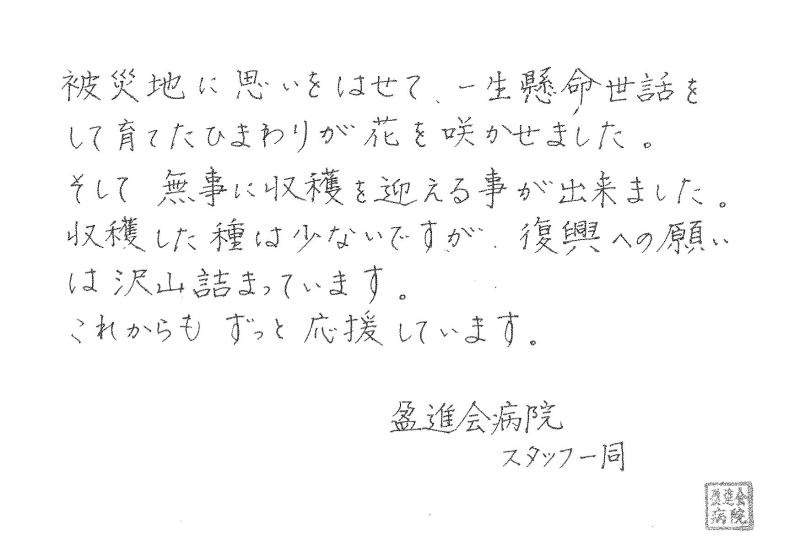 被災地に思いをはせて、一生懸命世話を
して育てたひまわりが花を咲かせました。
そして無事に収穫を迎える事が出来ました。
収穫した種は少ないですが、復興への願い
は沢山詰まっています。
これからもずっと応援しています。
盈進会病院
スタッフ一同
盈進会
病院